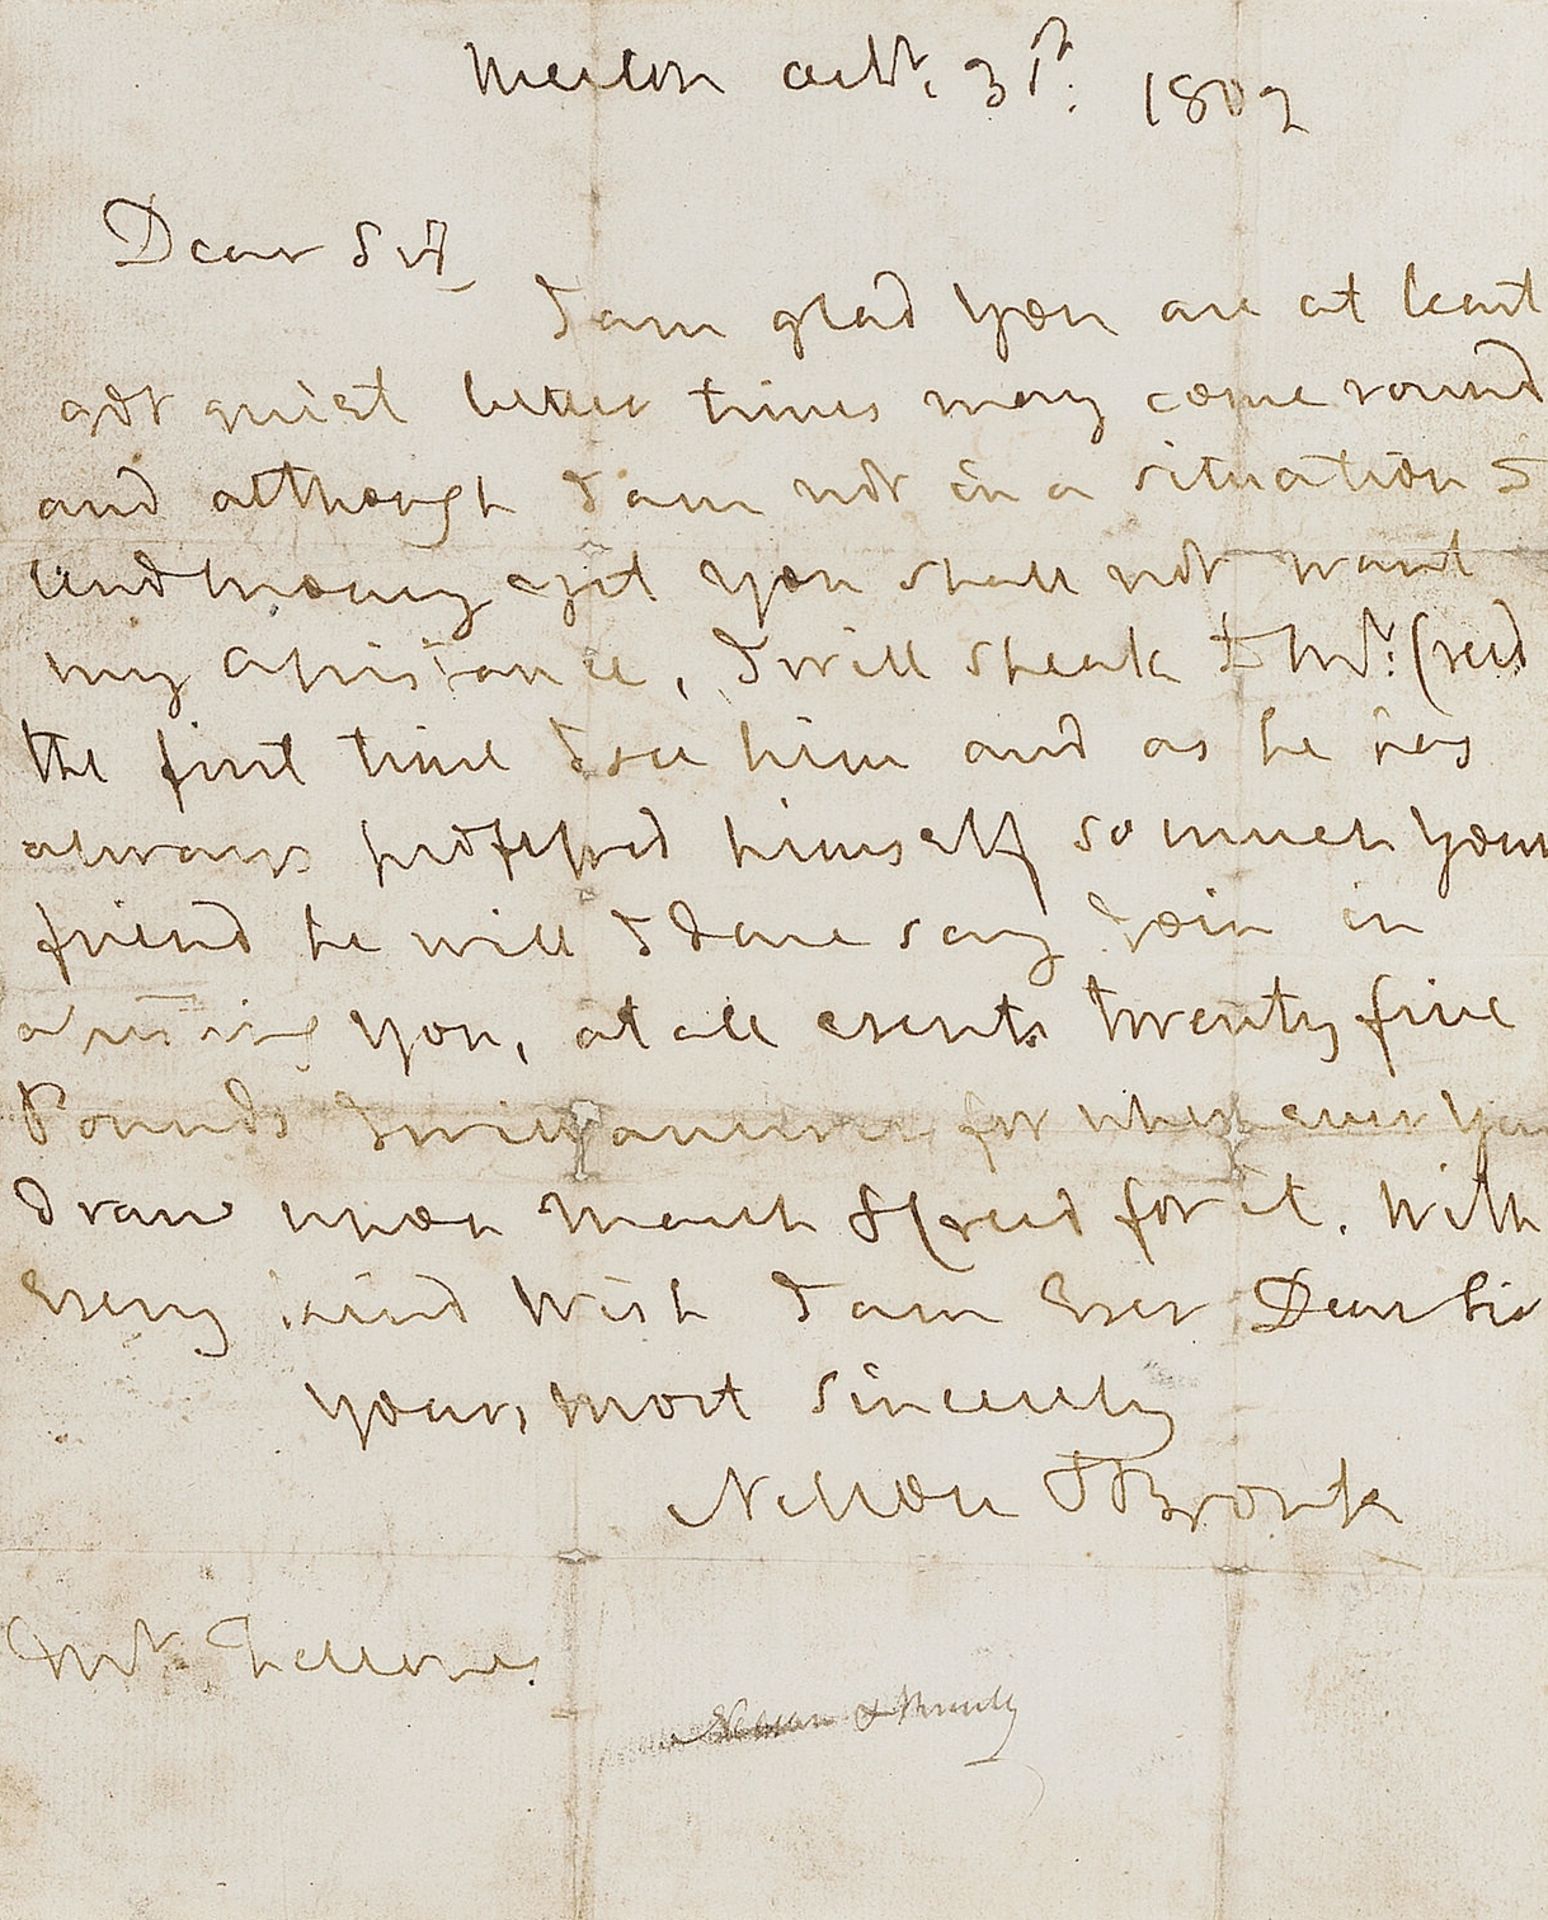 Merton octr. 31st: 1802
Dear Sir
I am glad you are at least
got quiet better times may come round
and although I am not in a situation to
lend money yet you shall not want
my assistance, I will speak to Mr: Creed
the first time I see him and as he has
always professed himself so much your
friend he will I dare say Join in
assisting you, at all events twenty five
Pounds I will answer for when ever you
draw upon Marsh & Creed for it. With
Every kind Wish I am Ever Dear Sir
yours most sincerely
Nelson & Bronte
Mr. Fellows.
Nelson & Bronte